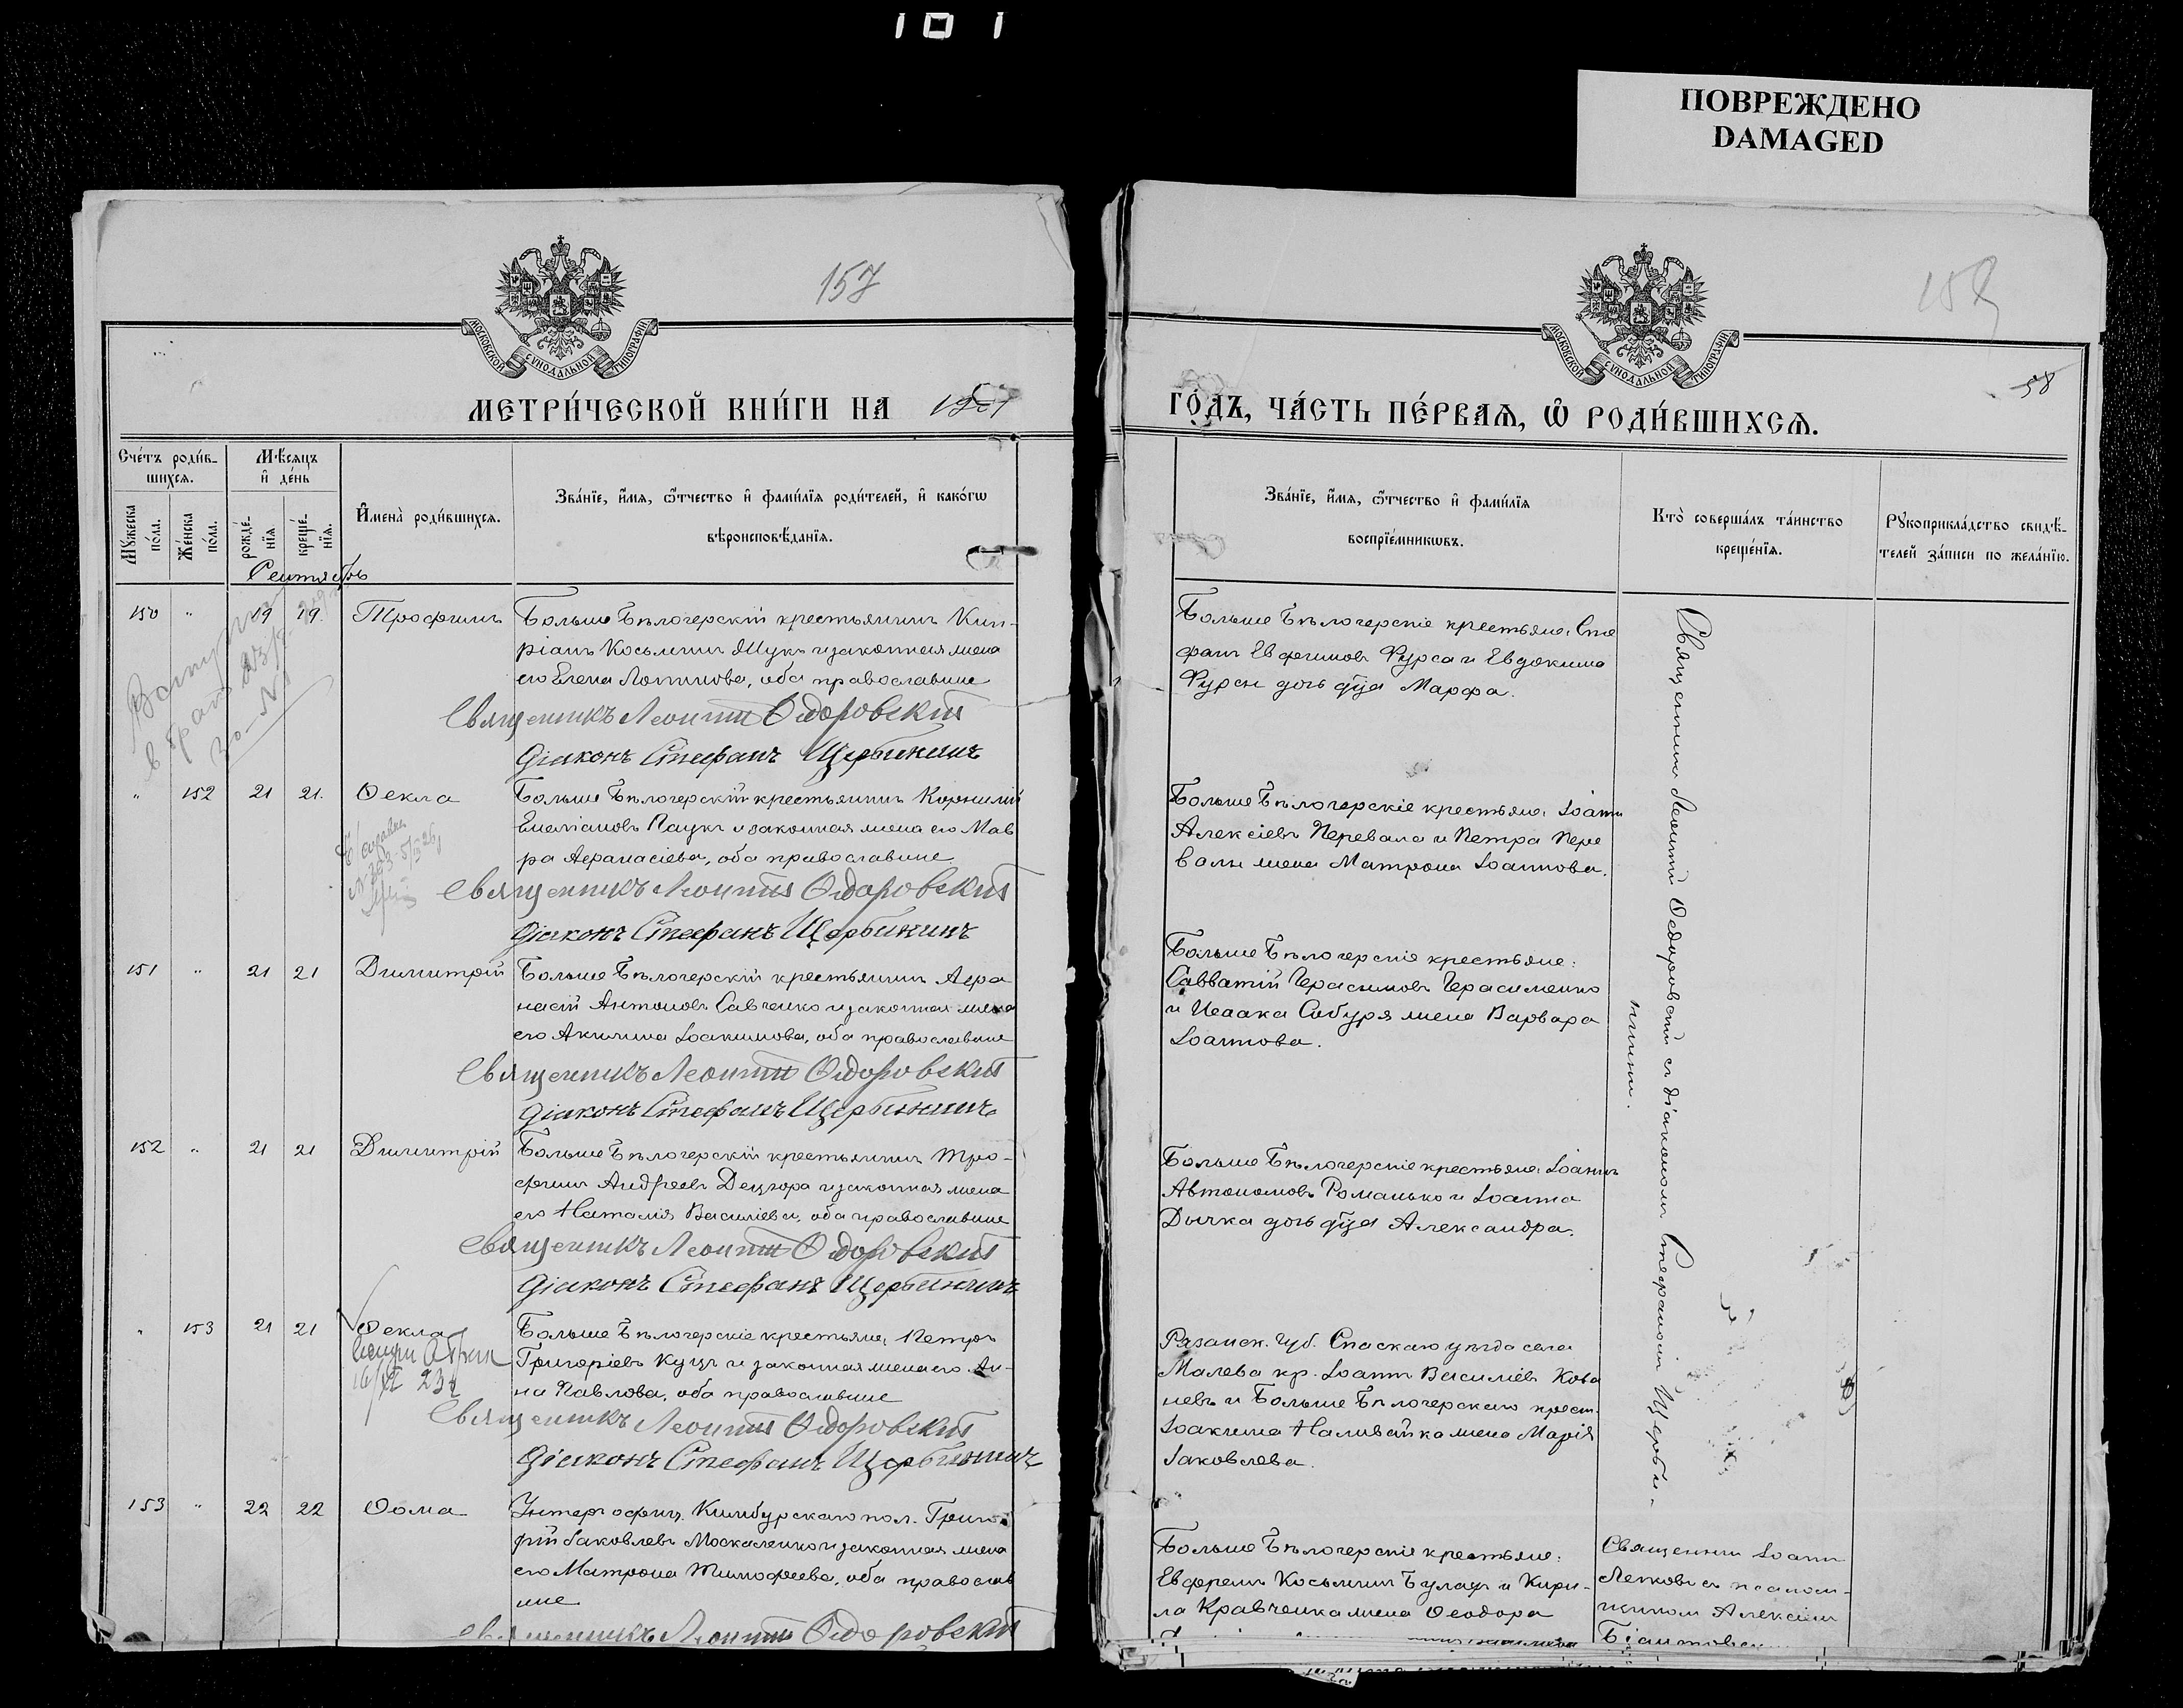 101
ПОВРЕЖДЕНО
DAMAGED
157
МОСКОВСКОЙ СѴНОДАЛЬНОЙ ТИПОГРАФІИ
МЕТРИ́ЧЕСКОЙ КНИ́ГИ НА 1901
Сче́тъ роди́в-
шихся.
Мѣ́сяцъ
и҆ де́нь
Му́жеска
по́ла.
Же́нска
по́ла.
рожде́-
нїѧ
креще́-
нїѧ.
И҆мена̀ роди́вшихсѧ.
Зва́нїе, и҆́мѧ, ѻ҆́тчество и҆ фами́лїѧ роди́телей, и҆ како́гѡ
вѣроисповѣ́данїѧ.
Сентябрь
150 " 19 19. Трофимъ
Больше Бѣлозерскій крестьянинъ Кип-
ріанъ Косьминъ Жукъ и законная жена
его Елена Логинова, оба православные
Священникъ Леонтій Ѳедоровскій
Діаконъ Стефанъ Щербининъ
" 152 21 21. Ѳекла
Больше Бѣлозерскій крестьянинъ Корнилій
Емеліановъ Паукъ и законная жена его Мав
ра Аѳанасіева, оба православные
Священникъ Леонтій Ѳедоровскій
Діаконъ Стефанъ Щербининъ
151 " 21 21 Димитрій
Больше Бѣлозерскій крестьянинъ Аѳа
насій Антоновъ Савченко и законная жена
его Акилина Іоакимова, оба православные
Священникъ Леонтій Ѳедоровскій
Діаконъ Стефанъ Щербининъ
152 " 21 21 Димитрій
Больше Бѣлозерскій крестьянинъ Тро-
фимъ Андреевъ Децюра и законная жена
его Наталія Василіева, оба православные
Священникъ Леонтій Ѳедоровскій
Діаконъ Стефанъ Щербининъ
" 153 21 21 Ѳекла
Больше Бѣлозерскіе крестьяне, Петръ
Григоріевъ Куцъ и законная жена его Ан-
на Павлова, оба православные
Священникъ Леонтій Ѳедоровскій
Діаконъ Стефанъ Щербининъ
153 " 22 22 Ѳома
Унтеръ офиц. Кинбурскаго пол. Григо
рій Іаковлевъ Москаленко и законная жена
его Матрона Тимофеева, оба православ
ные
Священникъ Леонтій Ѳедоровскій
158
58
МОСКОВСКОЙ СѴНОДАЛЬНОЙ ТИПОГРАФІИ
ГО́ДЪ, ЧА́СТЬ ПЕ́РВАѦ, Ѡ҆ РОДИ́ВШИХСѦ.
Зва́нїе, и҆́мѧ, ѻ҆́тчество и҆ фами́лїѧ
воспрїе́мникѡвъ.
Кто̀ соверша́лъ та́инство
креще́нїѧ.
Рꙋкоприкла́дство свидѣ́-
телей за́писи по жела́нїю.
Больше Бѣлозерскіе крестьяне: Сте
фанъ Евфимовъ Фурса и Евдокима
Фурсы дочь дѣв. Марфа.
Больше Бѣлозерскіе крестьяне: Іоаннъ
Алексіевъ Перевала и Петра Пере
валы жена Матрона Іоаннова.
Больше Бѣлозерскіе крестьяне:
Савватій Герасимовъ Герасименко
и Исаака Сабуря жена Варвара
Іоаннова.
Больше Бѣлозерскіе крестьяне: Іоаннъ
Автономовъ Романько и Іоанна
Дычка дочь дѣв. Александра.
Рязанск. губ. Спаскаго уѣзда села
Малева кр. Іоаннъ Василіевъ Кова
левъ и Больше Бѣлозерскаго крест.
Іоакима Наливайка жена Марія
Іаковлева.
Больше Бѣлозерскіе крестьяне:
Евфремъ Косьминъ Булахъ и Кири-
ла Кравченка жена Ѳеодора
Священникъ Леонтій Ѳедоровскій съ діакономъ Стефаномъ Щерби-
нинымъ.
Священникъ Іоаннъ
псалом-
щикомъ Алексіемъ